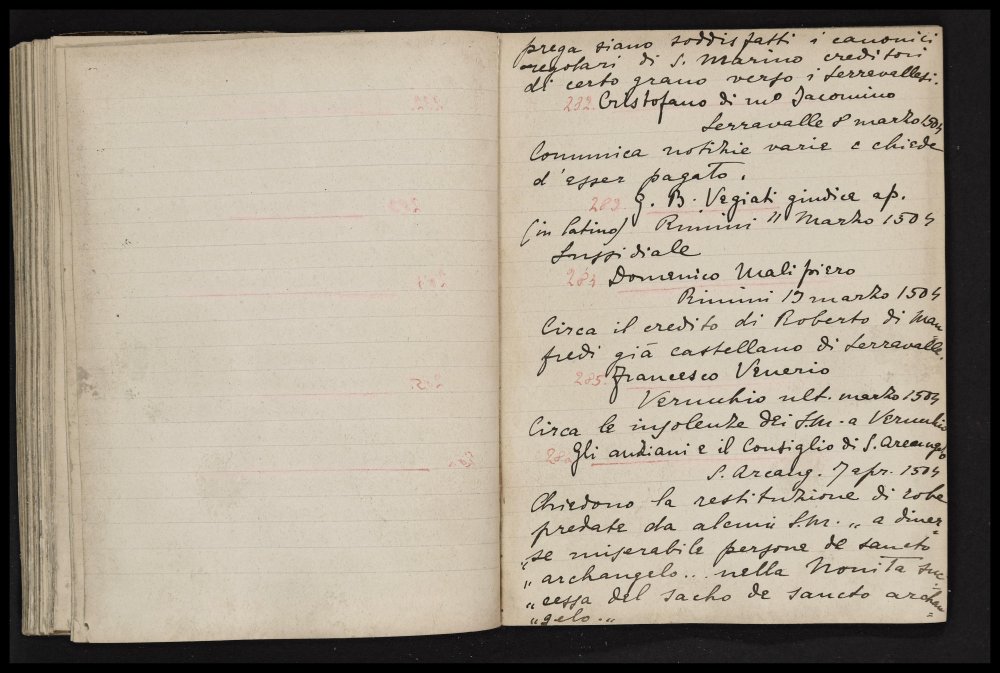 prega siano soddisfatti i canonici
regolari di S. Marino creditori
di certo grano verso i Serravallesi.
282. Cristofano di mº Jacomino
Serravalle 8 marzo 1504
Comunica notizie varie e chiede
d'esser pagato.
283. G. B. Vegiati giudice ap.
(in latino) Rimini 11 Marzo 1504
Sussidiale
284 Domenico Malipiero
Rimini 13 marzo 1504
Circa il credito di Roberto di Man
fredi già castellano di Serravalle.
285. Francesco Venerio
Verucchio ult. marzo 1504
Circa le insolenze dei S.M. a Verucchio
286 Gli anziani e il Consiglio di S. Arcangelo
S. Arcang. 7 apr. 1504
Chiedono la restituzione di robe
predate da alcuni S.M. „ a diver=
„se miserabile persone de sancto
„ archangelo... nella Novità suc=
„ cessa del sacho de sancto archan=
„gelo.„